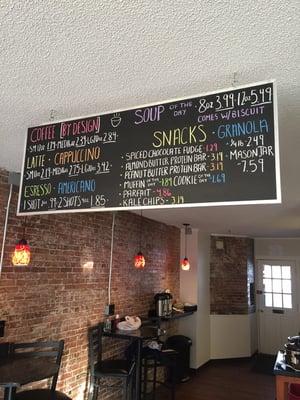 COFFEE [BY DESIGN]
SM 1.79 · MEDIUM 2.39 LG 2.84
LATTE · CAPPUCCINO
SM 2.19 · MEDIUM 2.75 · LG 3.42
ESPRESSO · AMERICANO
1 SHOT .99 · 2 SHOTS 1.85
SOUP OF THE DAY
8oz 3.99 · 12oz 5.49
COMES W/BISCUIT
SNACKS · GRANOLA
· SPICED CHOCOLATE FUDGE 1.29
· ALMOND BUTTER PROTEIN BAR · 3.19
· PEANUT BUTTER PROTEIN BAR · 3.19
· MUFFIN OF THE DAY 1.89 COOKIE OF THE DAY 1.69
· PARFAIT · 4.86
· KALE CHIPS · 3.19
1/4 lb 2.49
· MASON JAR
- 7.59